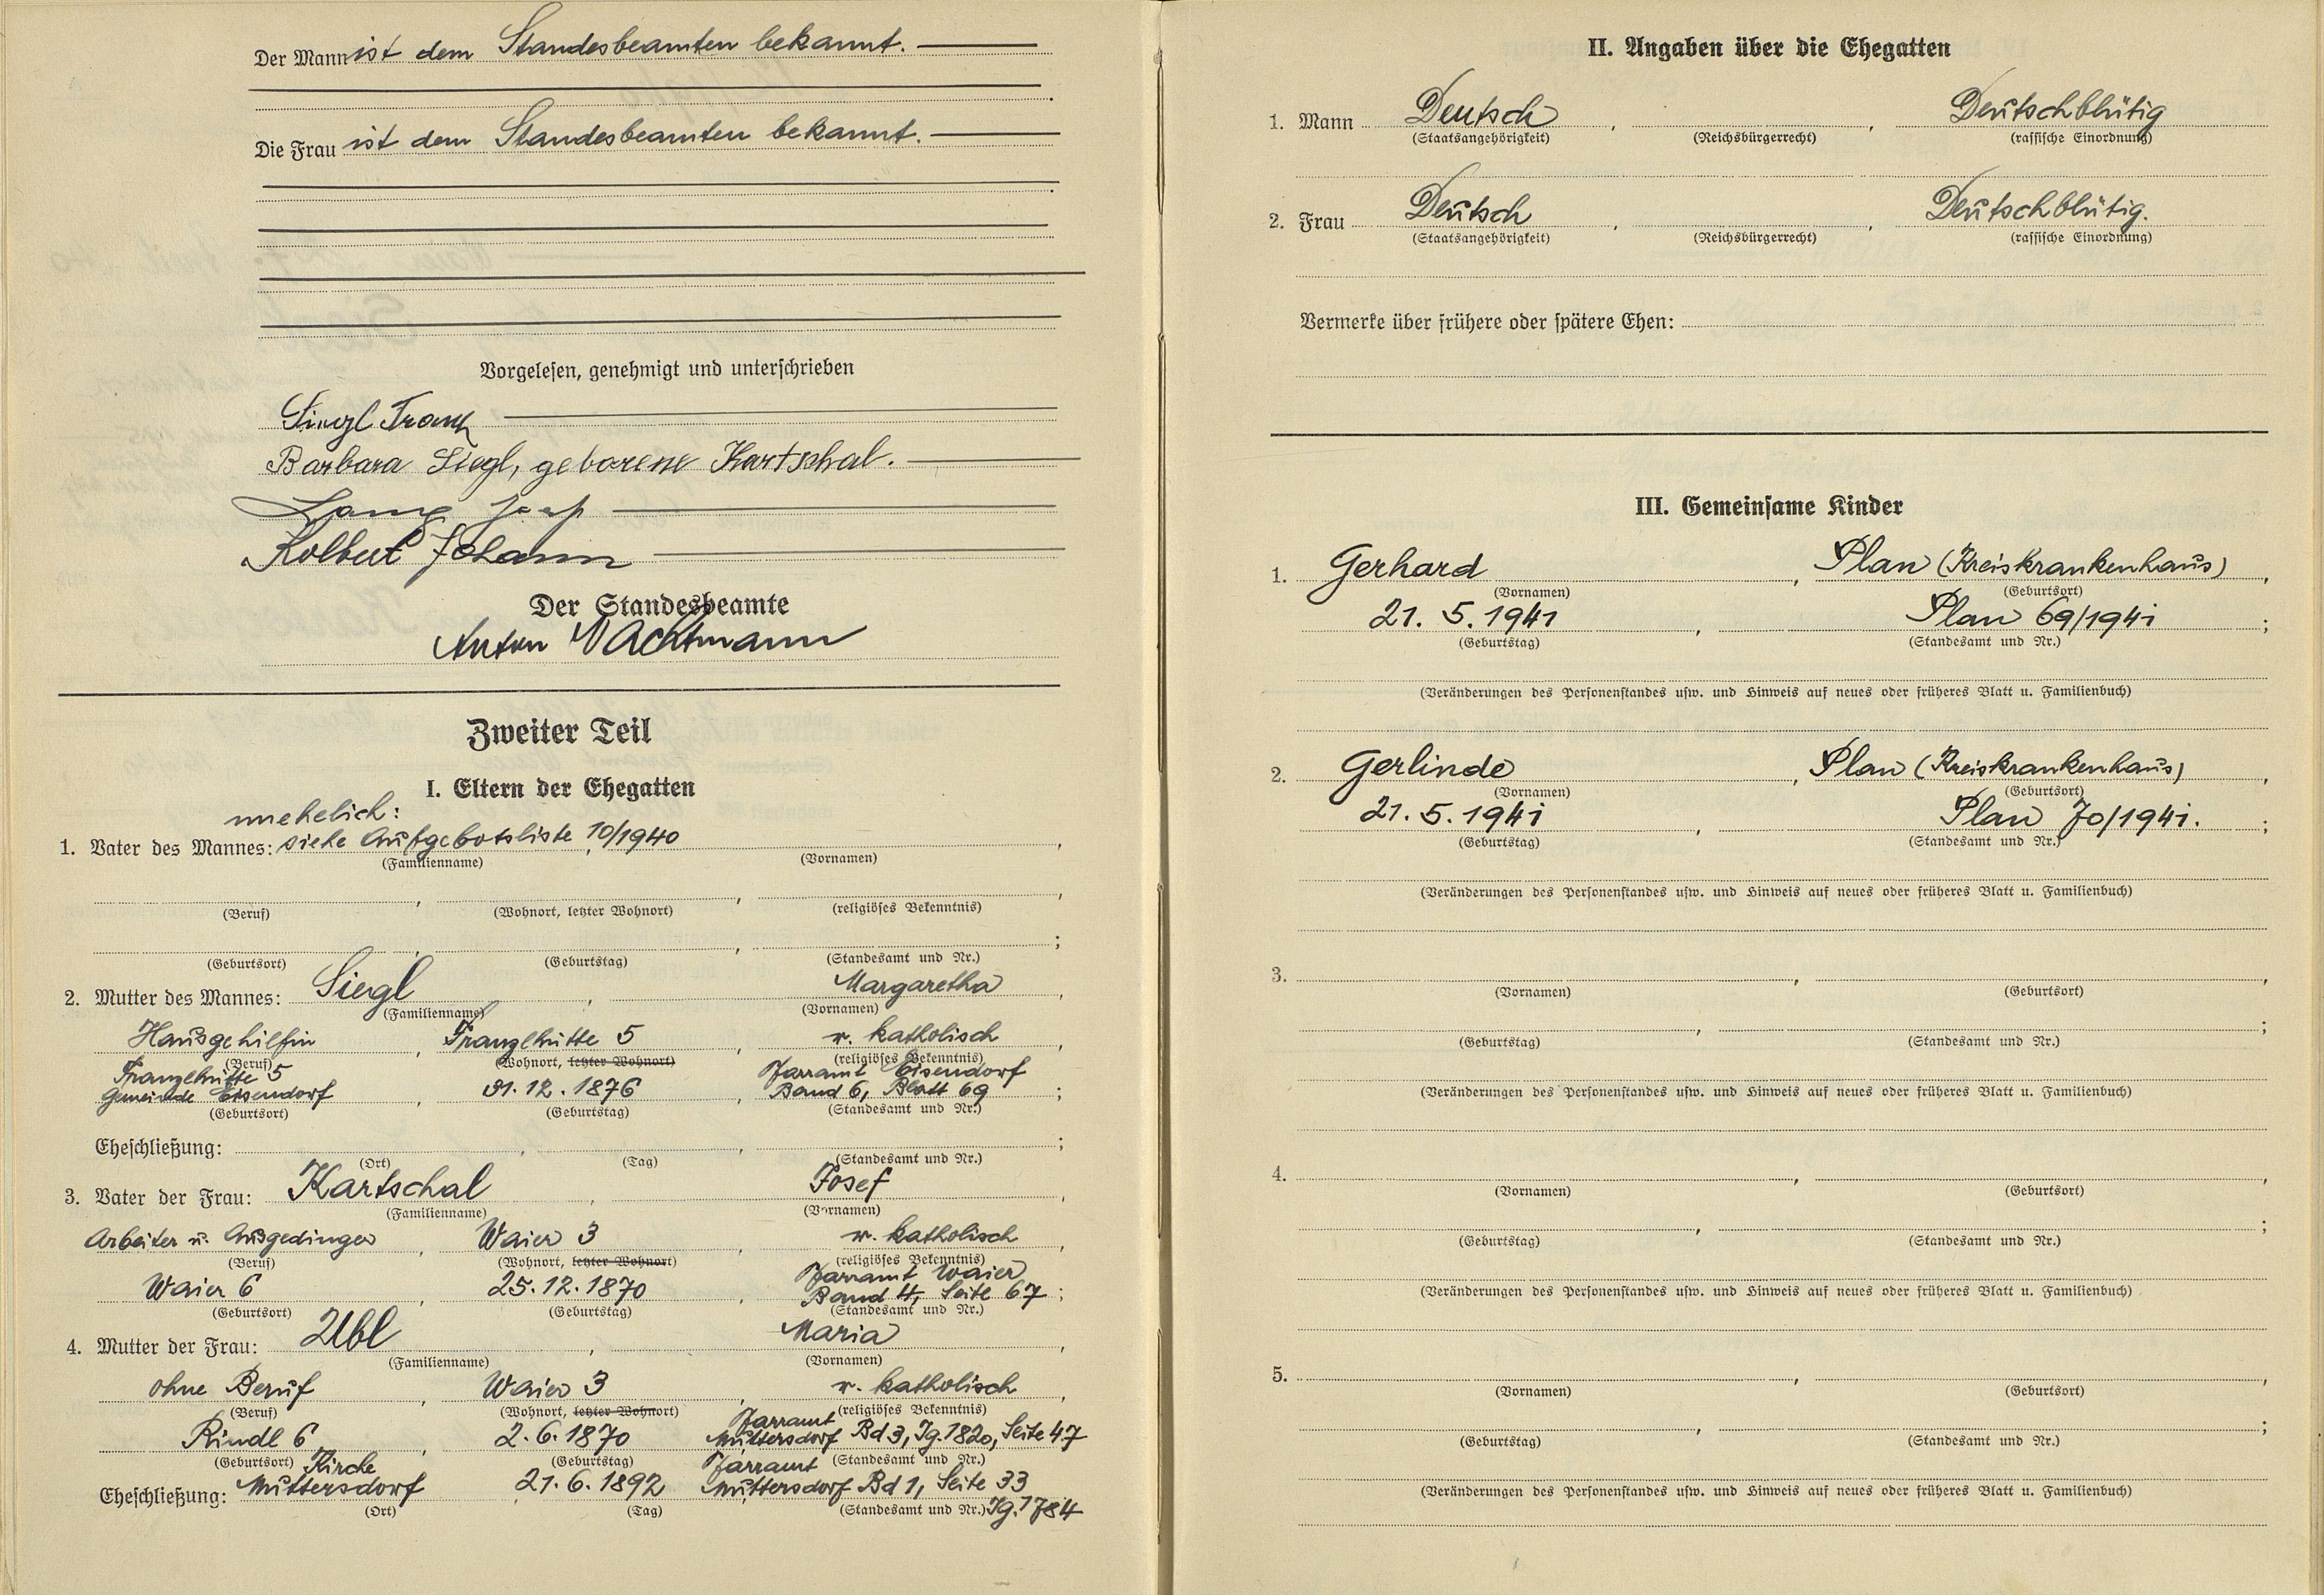 Der Mann ist dem Standesbeamten bekannt.
Die Frau ist dem Standesbeamten bekannt.
Vorgelesen, genehmigt und unterschrieben
Siegl Franz
Barbara Siegl, geborene Kartschal.
Lang Josef
Kolbert Johann
Der Standesbeamte
Anton Wachtmann
Zweiter Teil
I. Eltern der Ehegatten
unehelich:
1. Vater des Mannes: siehe Aufgebotsliste 10/1940
(Familienname) (Vornamen)
(Beruf) (Wohnort, letzter Wohnort) (religiöses Bekenntnis)
(Geburtsort) (Geburtstag) (Standesamt und Nr.)
2. Mutter des Mannes: Siegl, Margaretha,
(Familienname) (Vornamen)
Hausgehilfin, Franzlhütte 5, r. katholisch,
(Beruf) (Wohnort, letzter Wohnort) (religiöses Bekenntnis)
Franzlhütte 5 Pfarramt Eisendorf
Gemeinde Eisendorf, 31.12.1876, Band 6, Blatt 69;
(Geburtsort) (Geburtstag) (Standesamt und Nr.)
Eheschließung:
(Ort) (Tag) (Standesamt und Nr.)
3. Vater der Frau: Kartschal, Josef,
(Familienname) (Vornamen)
Arbeiter u. Ausgedinger, Waier 3, r. katholisch,
(Beruf) (Wohnort, letzter Wohnort) (religiöses Bekenntnis)
Pfarramt Waier
Waier 6, 25.12.1870, Band 4, Seite 67;
(Geburtsort) (Geburtstag) (Standesamt und Nr.)
4. Mutter der Frau: Ubl, Maria,
(Familienname) (Vornamen)
ohne Beruf, Waier 3, r. katholisch,
(Beruf) (Wohnort, letzter Wohnort) (religiöses Bekenntnis)
Pfarramt
Rindl 6, 2.6.1870 Muttersdorf Bd 3, Jg. 1820, Seite 47
(Geburtsort) (Geburtstag) (Standesamt und Nr.)
Kirche Pfarramt
Eheschließung: Muttersdorf, 21.6.1892 Muttersdorf Bd 1, Seite 33
(Ort) (Tag) (Standesamt und Nr.) Jg. 1784
II. Angaben über die Ehegatten
1. Mann Deutsch, , Deutschblütig
(Staatsangehörigkeit) (Reichsbürgerrecht) (rassische Einordnung)
2. Frau Deutsch, , Deutschblütig.
(Staatsangehörigkeit) (Reichsbürgerrecht) (rassische Einordnung)
Vermerke über frühere oder spätere Ehen:
III. Gemeinsame Kinder
1. Gerhard, Plan (Kreiskrankenhaus),
(Vornamen) (Geburtsort)
21. 5. 1941, Plan 69/1941;
(Geburtstag) (Standesamt und Nr.)
(Veränderungen des Personenstandes usw. und Hinweis auf neues oder früheres Blatt u. Familienbuch)
2. Gerlinde, Plan (Kreiskrankenhaus),
(Vornamen) (Geburtsort)
21. 5. 1941, Plan 70/1941.;
(Geburtstag) (Standesamt und Nr.)
(Veränderungen des Personenstandes usw. und Hinweis auf neues oder früheres Blatt u. Familienbuch)
3.
(Vornamen) (Geburtsort)
(Geburtstag) (Standesamt und Nr.)
(Veränderungen des Personenstandes usw. und Hinweis auf neues oder früheres Blatt u. Familienbuch)
4.
(Vornamen) (Geburtsort)
(Geburtstag) (Standesamt und Nr.)
(Veränderungen des Personenstandes usw. und Hinweis auf neues oder früheres Blatt u. Familienbuch)
5.
(Vornamen) (Geburtsort)
(Geburtstag) (Standesamt und Nr.)
(Veränderungen des Personenstandes usw. und Hinweis auf neues oder früheres Blatt u. Familienbuch)